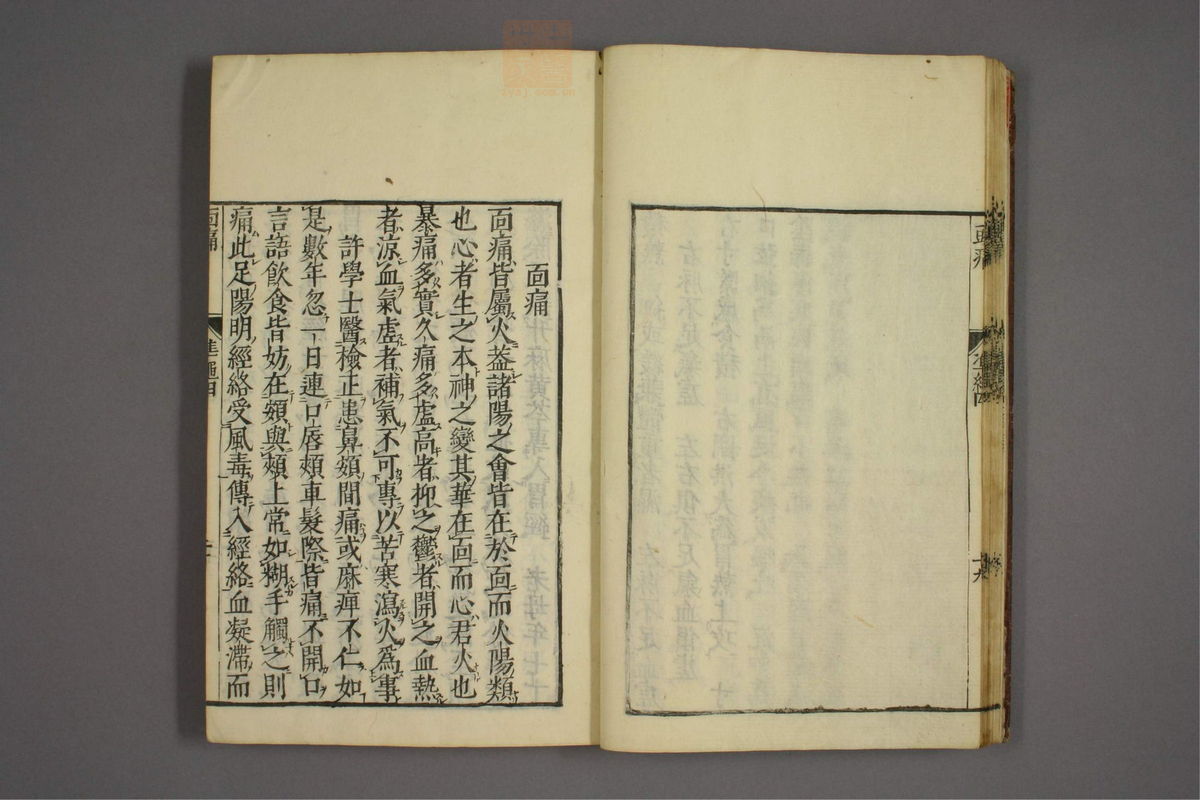 頭痛
準繩四
十九
面痛
面痛皆屬火葢諸陽之會皆在於面而火陽類
也心者生之本神之變其華在面而心君火也
暴痛多實久痛多虛高者抑之鬱者開之血熱
者涼血氣虛者補氣不可專以苦寒瀉火爲事
許學士醫檢正患鼻頞間痛或麻痺不仁如
是數年忽一日連口唇頰車髮際皆痛不開口
言語飲食皆妨在頞與頰上常如糊手觸之則
痛此足陽明經絡受風毒傳入經絡血凝滯而
面痛
準繩四